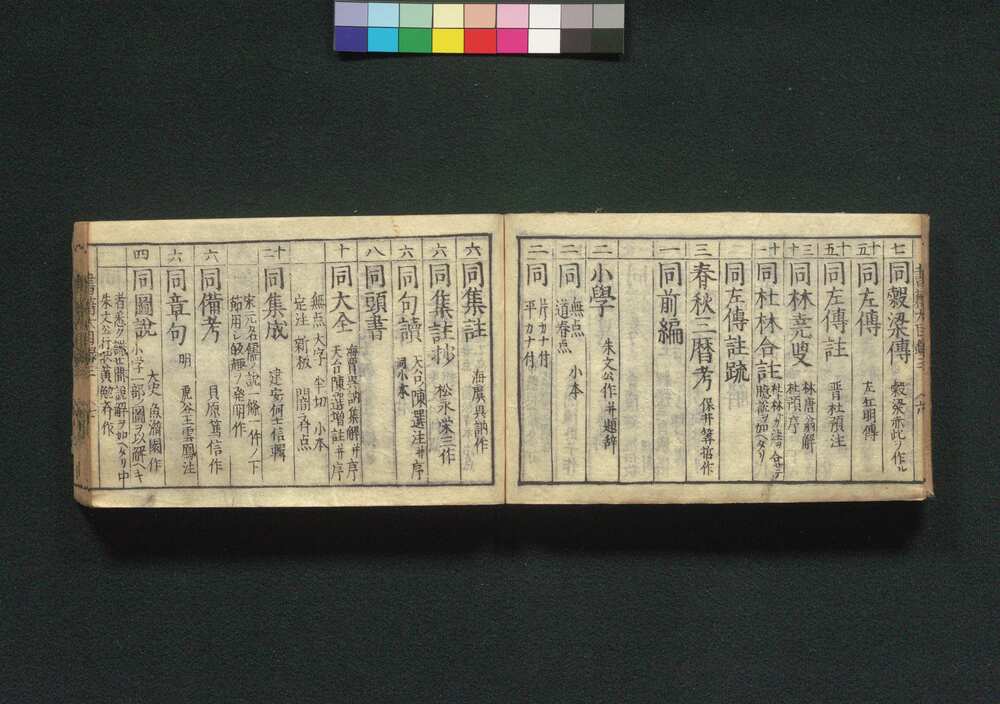 七 同穀梁傳 穀梁赤此ヲ作ル
十五 同左傳 左丘明傳
十五 同左傳註 晋杜預注
十三 同林堯叟 林唐翁解
杜預序
十一 同杜林合註 杜林ガ注ヲ合テ
臆説ヲ加ヘタリ
同左傳註疏
三 春秋三暦考 保井算哲作
一 同前編
二 小學 朱文公作并題辞
二 同 無点 小本
道春点
二 同 片カナ付
平カナ付
六 同集註 海虞呉訥作
六 同集註抄 松永榮三作
六 同句讀 天台ノ陳選注并序
同小本
八 同頭書
十 同大全 海虞呉訥集解并序
天台陳選増註并序
無点 大字 半切 小本
定注 新板 間ニ有点
十二 同集成 建安何士信輯
宋元名儒ノ説ヲ條一件ノ下
六 同備考 貝原篤信作
六 同章句 明 鹿谷王雲鳳注
四 同圖説 大史ノ魚滄園作
小学ノ一部ノ圖ヲ以解ヘキ
者悉ク議セ間説解ヲ加ヘタリ中
朱文公行状黄勉斉作